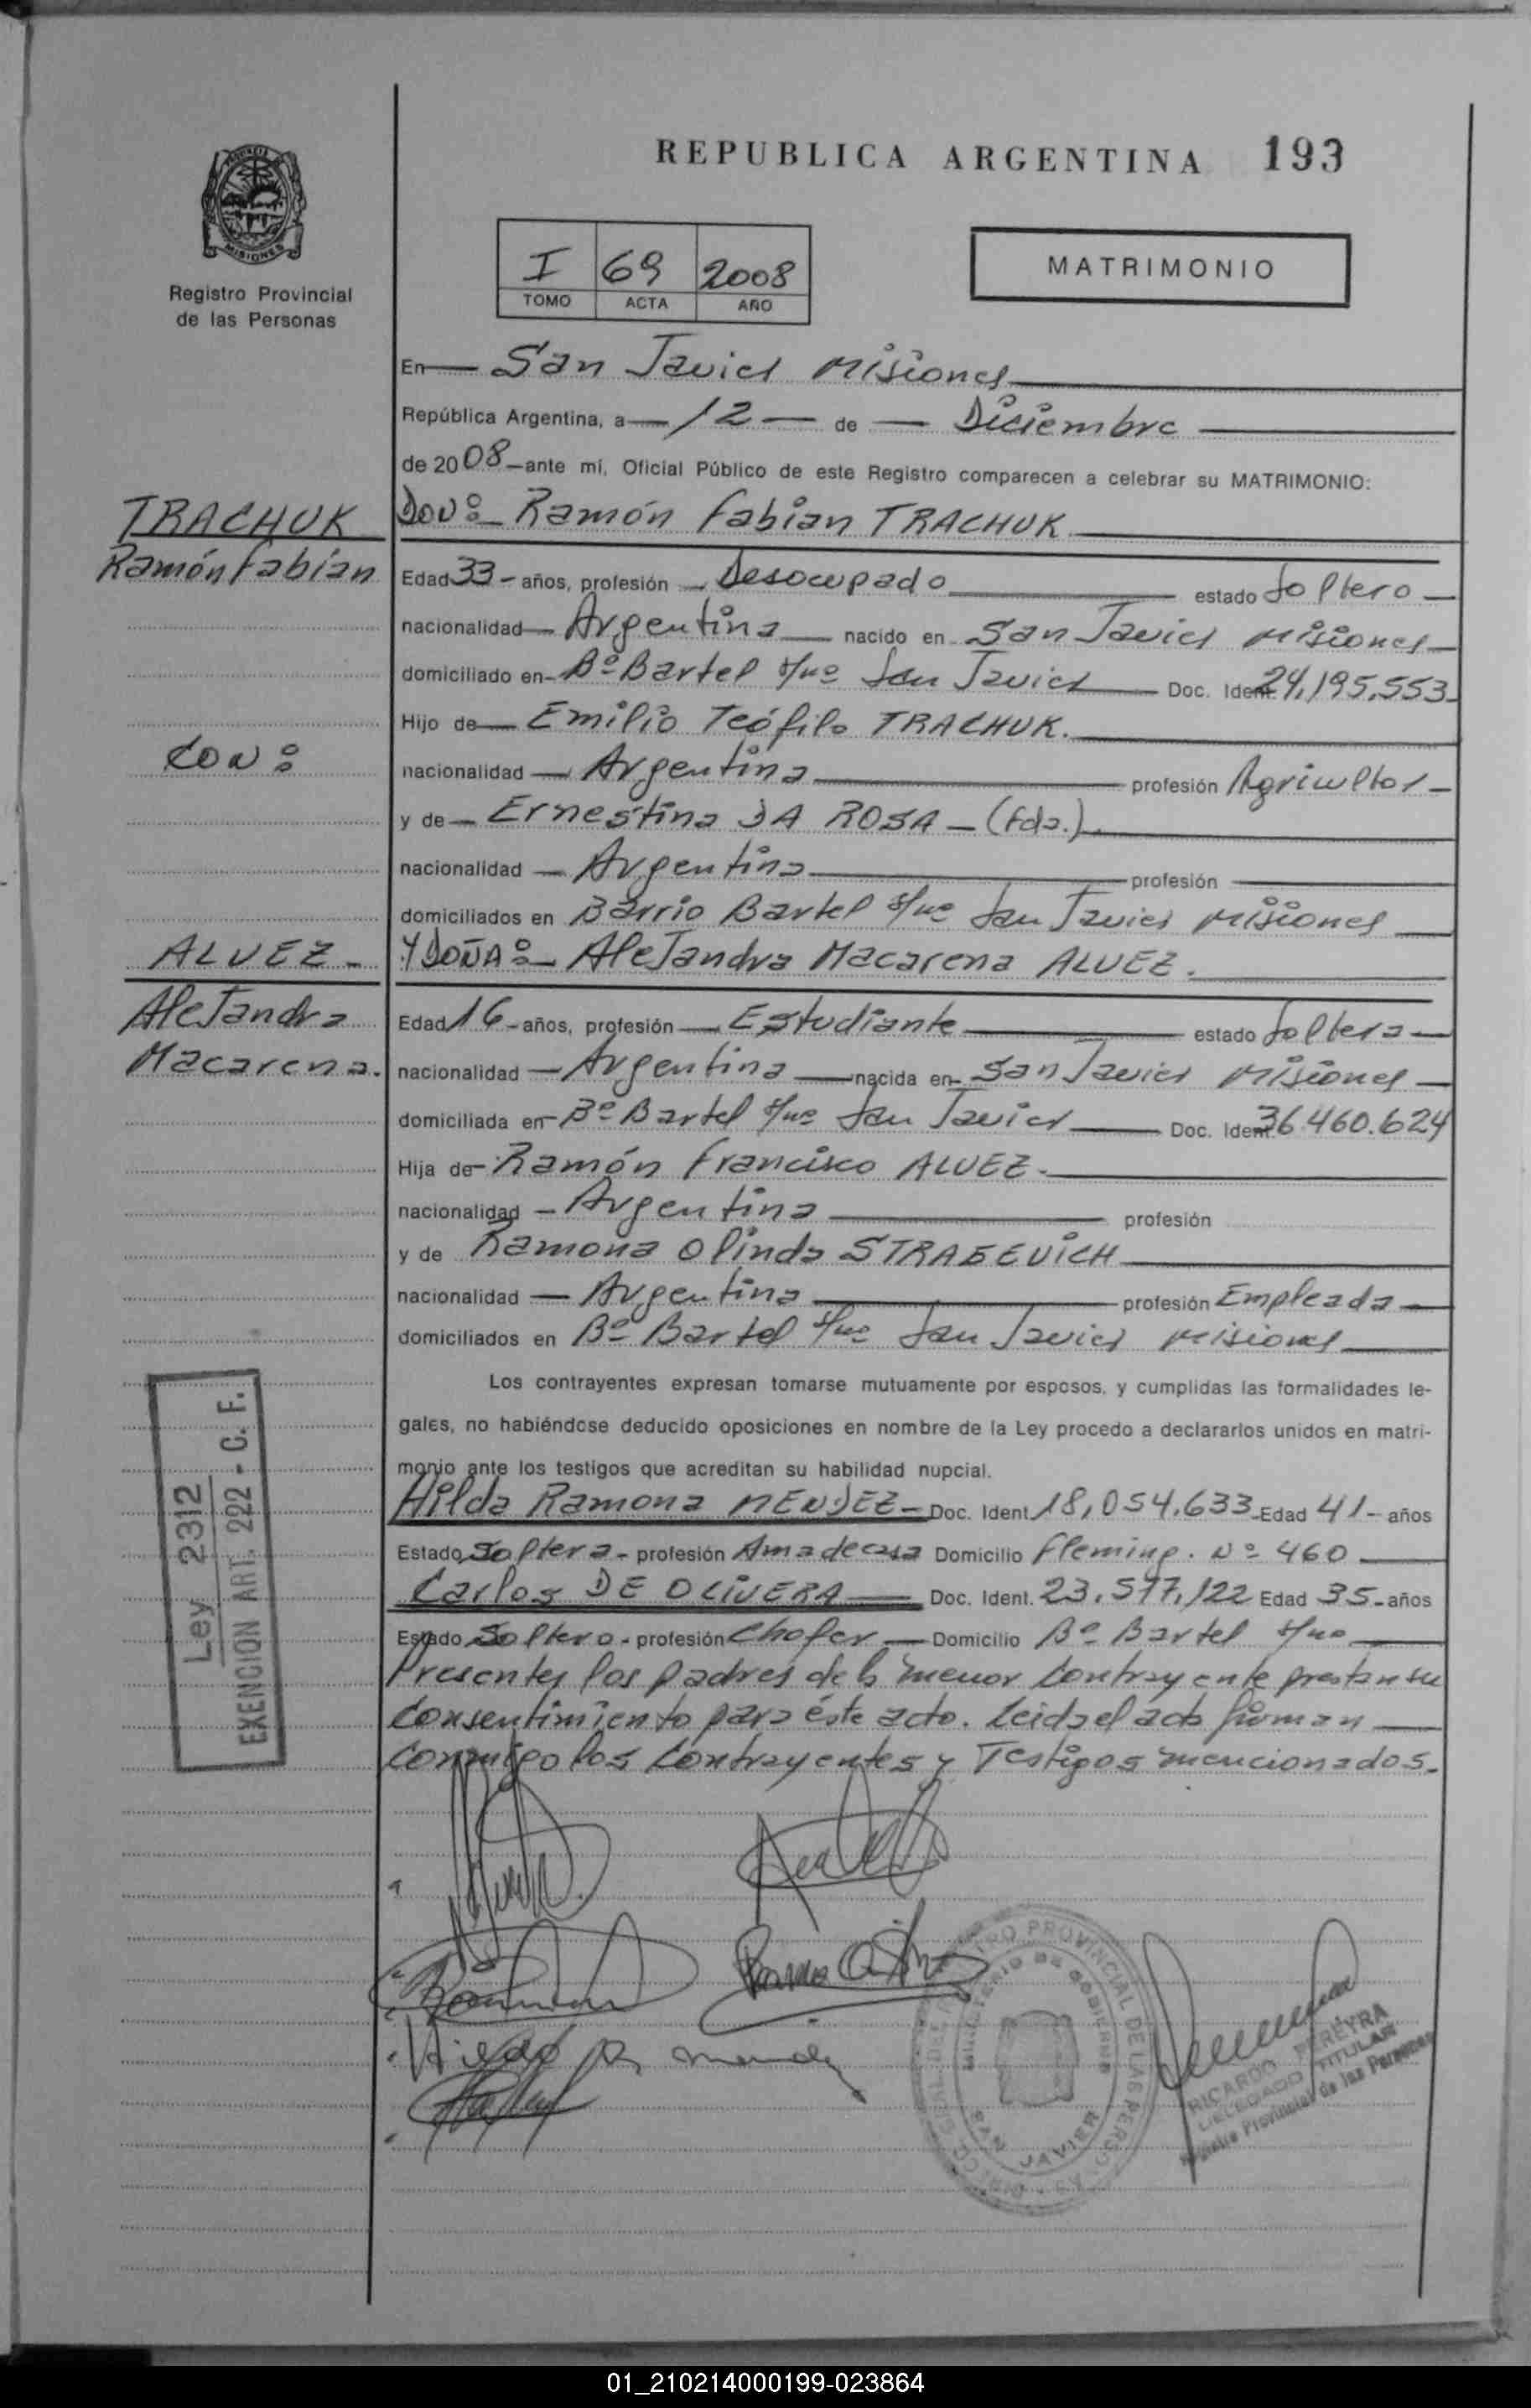 REPUBLICA ARGENTINA 193
PROVINCIA
MISIONES
Registro Provincial
de las Personas
I 69 2008
TOMO ACTA AÑO
MATRIMONIO
En San Javier Misiones
República Argentina, a 12 de Diciembre
de 2008 ante mí, Oficial Público de este Registro comparecen a celebrar su MATRIMONIO:
TRACHUK
Ramón Fabián
DON: Ramón Fabian TRACHUK
Edad 33 - años, profesión Desocupado estado Soltero
nacionalidad Argentina nacido en San Javier Misiones
domiciliado en Bº Bartel s/nº San Javier Doc. Ident. 24,195,553
Hijo de Emilio Teófilo TRACHUK.
CON:
nacionalidad Argentina profesión Agricultor
y de Ernestina DA ROSA - (Fda.).
nacionalidad Argentina profesión
domiciliados en Barrio Bartel s/nº San Javier Misiones
ALVEZ -
Alejandra
Macarena.
Y DOÑA: Alejandra Macarena ALVEZ.
Edad 16 - años, profesión Estudiante estado Soltera
nacionalidad Argentina nacida en San Javier Misiones
domiciliada en Bº Bartel s/nº San Javier Doc. Ident. 36.460.624
Hija de Ramón Francisco ALVEZ.
nacionalidad Argentina profesión
y de Ramona Olinda
nacionalidad Argentina profesión Empleada
domiciliados en Bº Bartel s/nº San Javier Misiones
Los contrayentes expresan tomarse mutuamente por esposos, y cumplidas las formalidades le-
gales, no habiéndose deducido oposiciones en nombre de la Ley procedo a declararlos unidos en matri-
monio ante los testigos que acreditan su habilidad nupcial.
Hilda Ramona MENDEZ - Doc. Ident. 18,054.633 Edad 41 - años
Estado Soltera - profesión Ama de casa Domicilio Fleming. Nº 460
Carlos DE OLIVERA Doc. Ident. 23,577,122 Edad 35 - años
Estado Soltero - profesión Chofer Domicilio Bº Bartel s/nº
Presentes los padres de la menor contrayente prestan su
consentimiento para éste acto. Leida el acta firman
conmigo los contrayentes y Testigos mencionados.
Ley 2312
EXENCION ART. 222 - C. F.
REGISTRO PROVINCIAL DE LAS PERSONAS
MINISTERIO DE GOBIERNO
SAN JAVIER
RICARDO PEREYRA
DELEGADO TITULAR
Registro Provincial de las Personas
01_210214000199-023864